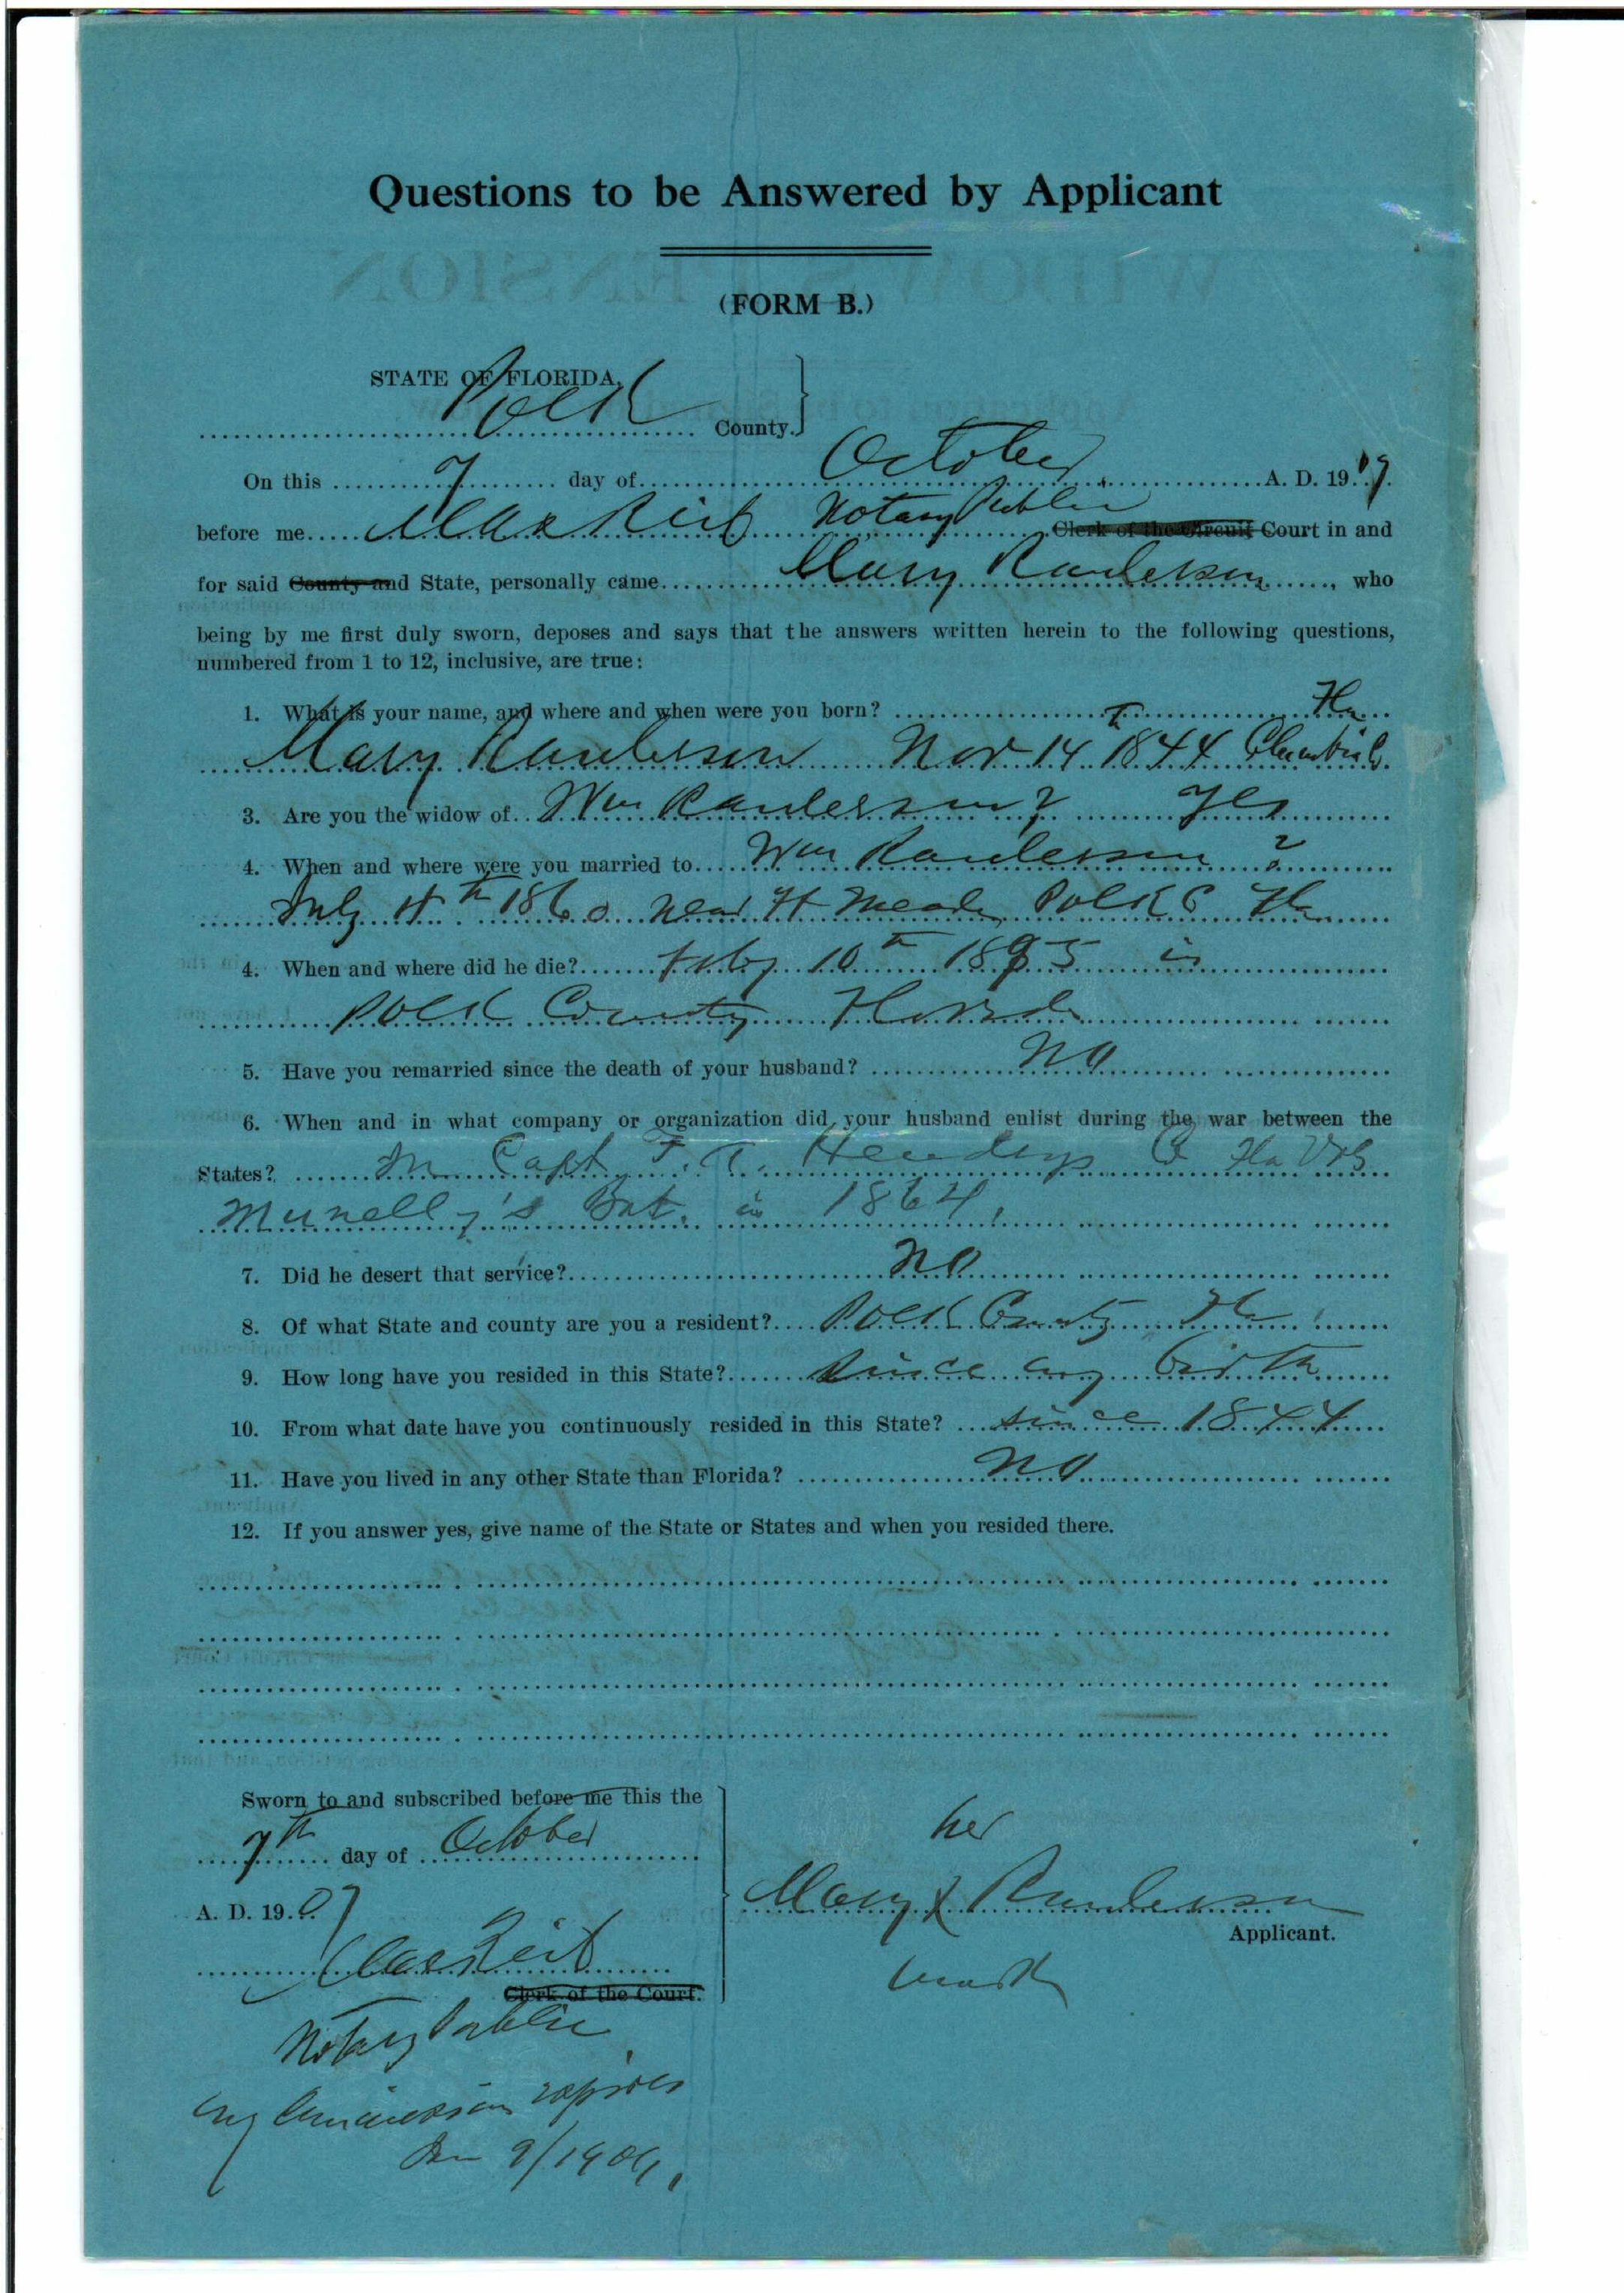 Questions to be Answered by Applicant
(FORM B.)
STATE OF FLORIDA,
Polk County.
On this 7 day of October A. D. 1907.
before me Max Reif Notary Public Clerk of the Circuit Court in and
for said County and State, personally came Mary Raulerson, who
being by me first duly sworn, deposes and says that the answers written herein to the following questions,
numbered from 1 to 12, inclusive, are true:
1. What is your name, and where and when were you born? Fla
Mary Raulerson Nov 14th 1844 Columbia Co.
3. Are you the widow of Wm Raulerson? Yes
4. When and where were you married to Wm Raulerson?
July 4th 1860 near Ft Meade Polk C Fla
4. When and where did he die? Feby 10th 1895 in
Polk County Florida
5. Have you remarried since the death of your husband? No
6. When and in what company or organization did your husband enlist during the war between the
States? In Capt F. A. Hendrys Co Fla Vols
Munelly's Bat. in 1864,
7. Did he desert that service? No
8. Of what State and county are you a resident? Polk County Fla
9. How long have you resided in this State? Since my birth
10. From what date have you continuously resided in this State? since 1844
11. Have you lived in any other State than Florida? No
12. If you answer yes, give name of the State or States and when you resided there.
Sworn to and subscribed before me this the
7th day of October
A. D. 1907
Max Reif
Clerk of the Court.
Notary Public
my Commission expires
Jan 9/1909,
her
Mary X Raulerson
Applicant.
mark